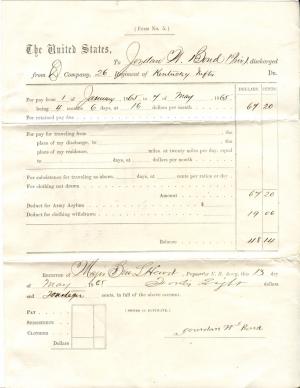 (FORM No. 5.)
The United States,
To Jourdan W. Bond (Priv.), discharged
from D Company, 26 Regiment of Kentucky Infty Dr.
DOLLARS CENTS
For pay from 1 of January 1865 to 7 of May 1865
being 4 months 6 days, at 16 dollars per month 67 20
For retained pay due
For pay for traveling from the
place of my discharge, to the
place of my residence, miles at twenty miles per day, equal
to days, at dollars per month
For subsistence for traveling as above, days, at cents per ration or day
For clothing not drawn
Amount 67 20
Deduct for Army Asylum $
Deduct for clothing withdrawn 19 06
Balance 48 14
RECEIVED of Major Ben. L. , Paymaster U. S. Army, this 13 day
of May 1865 Forty Eight dollars
and Fourteen cents, in full of the above account.
PAY
SUBSISTENCE
CLOTHING
Dollars
(SIGNED IN DUPLICATE.)
Jourdan W. Bond